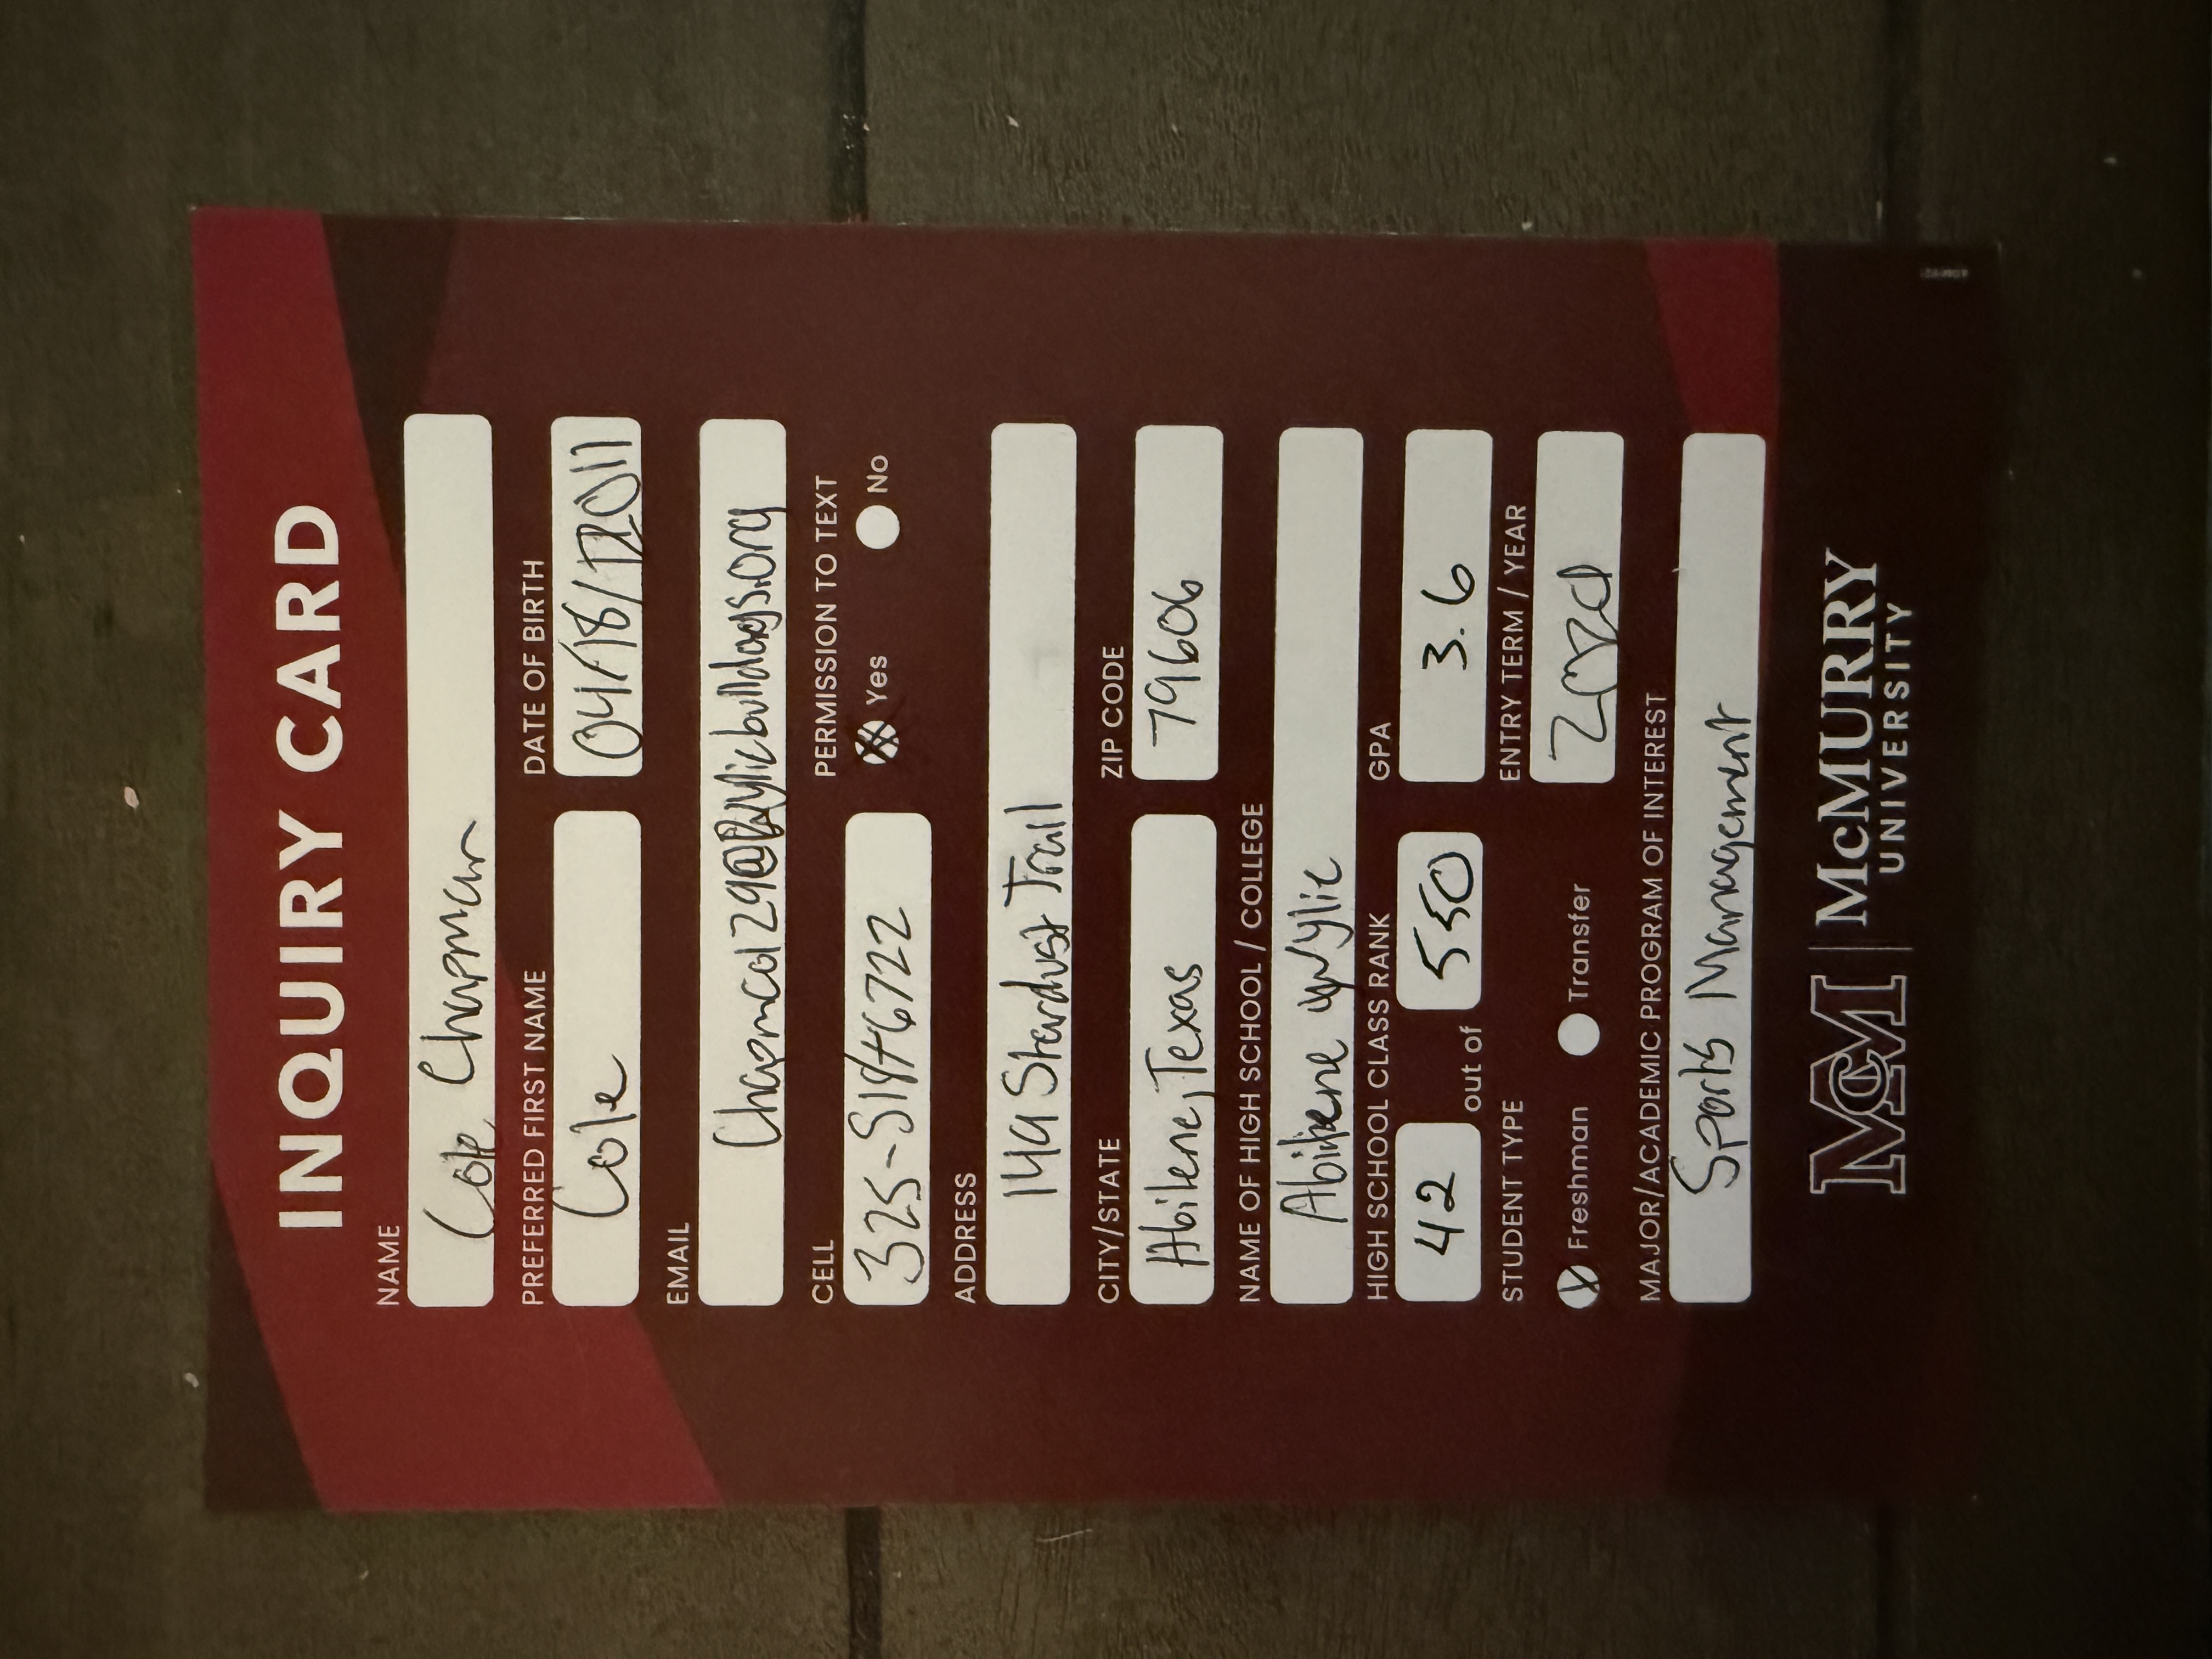 INQUIRY CARD
NAME
Cole Chapman
PREFERRED FIRST NAME DATE OF BIRTH
Cole 04/18/2011
EMAIL
Chapmcol29@wyliebulldogs.org
CELL PERMISSION TO TEXT
Yes No
ADDRESS
149 Stardust Trail
CITY/STATE ZIP CODE
Abilene, Texas 79606
NAME OF HIGH SCHOOL / COLLEGE
Abilene wylie
HIGH SCHOOL CLASS RANK GPA
42 out of 550 3.6
STUDENT TYPE ENTRY TERM / YEAR
Freshman Transfer
MAJOR/ACADEMIC PROGRAM OF INTEREST
Sports Management
McM McMURRY
UNIVERSITY